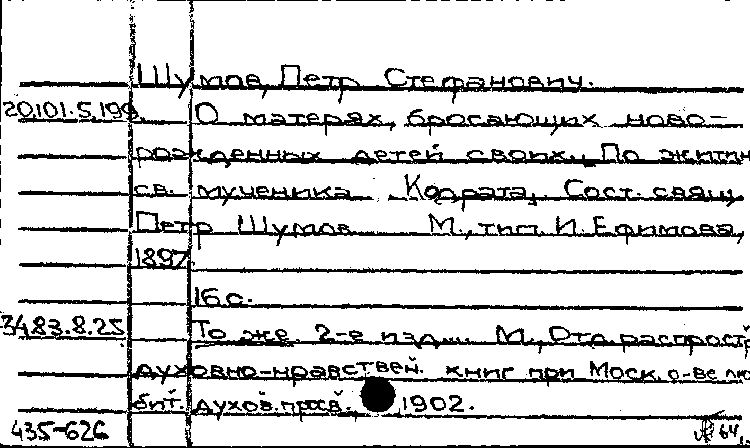 Шумов, Петр Стефанович.
20.101.5.199. О матерях, бросающих ново-
рожденных детей своих. По житии
св. мученика Кодрата. Сост. свящ.
Петр Шумов. М., тип. И. Ефимова,
1897.
16 с.
3483.8.25 То же. 2-е изд. М., Отд. распростр.
духовно-нравствен. книг при Моск. о-ве лю
бит. духов. просв., 1902.
435-626 64